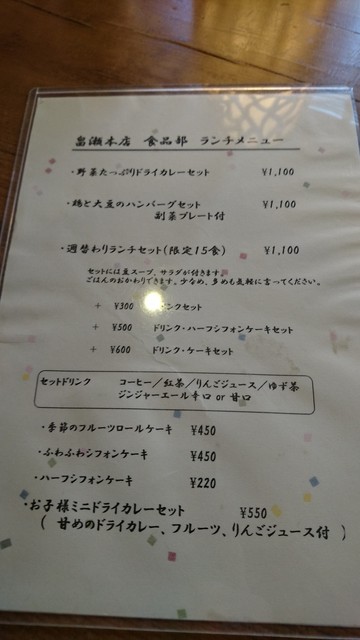 畠瀬本店 食品部 ランチメニュー
・野菜たっぷりドライカレーセット ¥1,100
・鶏と大豆のハンバーグセット ¥1,100
副菜プレート付
・週替わりランチセット(限定15食) ¥1,100
セットには豆スープ、サラダが付きます。
ごはんのおかわりできます。少なめ、多めも気軽に言ってください。
+ ¥300 ンクセット
+ ¥500 ドリンク・ハーフシフォンケーキセット
+ ¥600 ドリンク・ケーキセット
セットドリンク コーヒー/紅茶/りんごジュース/ゆず茶
ジンジャーエール辛口 or 甘口
・季節のフルーツロールケーキ ¥450
・ふわふわシフォンケーキ ¥450
・ハーフシフォンケーキ ¥220
・お子様ミニドライカレーセット ¥550
( 甘めのドライカレー、フルーツ、りんごジュース付 )